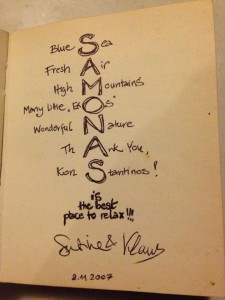 Blue Sea
Fresh Air
High Mountains
Many little
Wonderful Nature
ThAnk You,
KonStantinos!
is
the best
place to relax!!!
Sabine & Klaus
2.11.2007